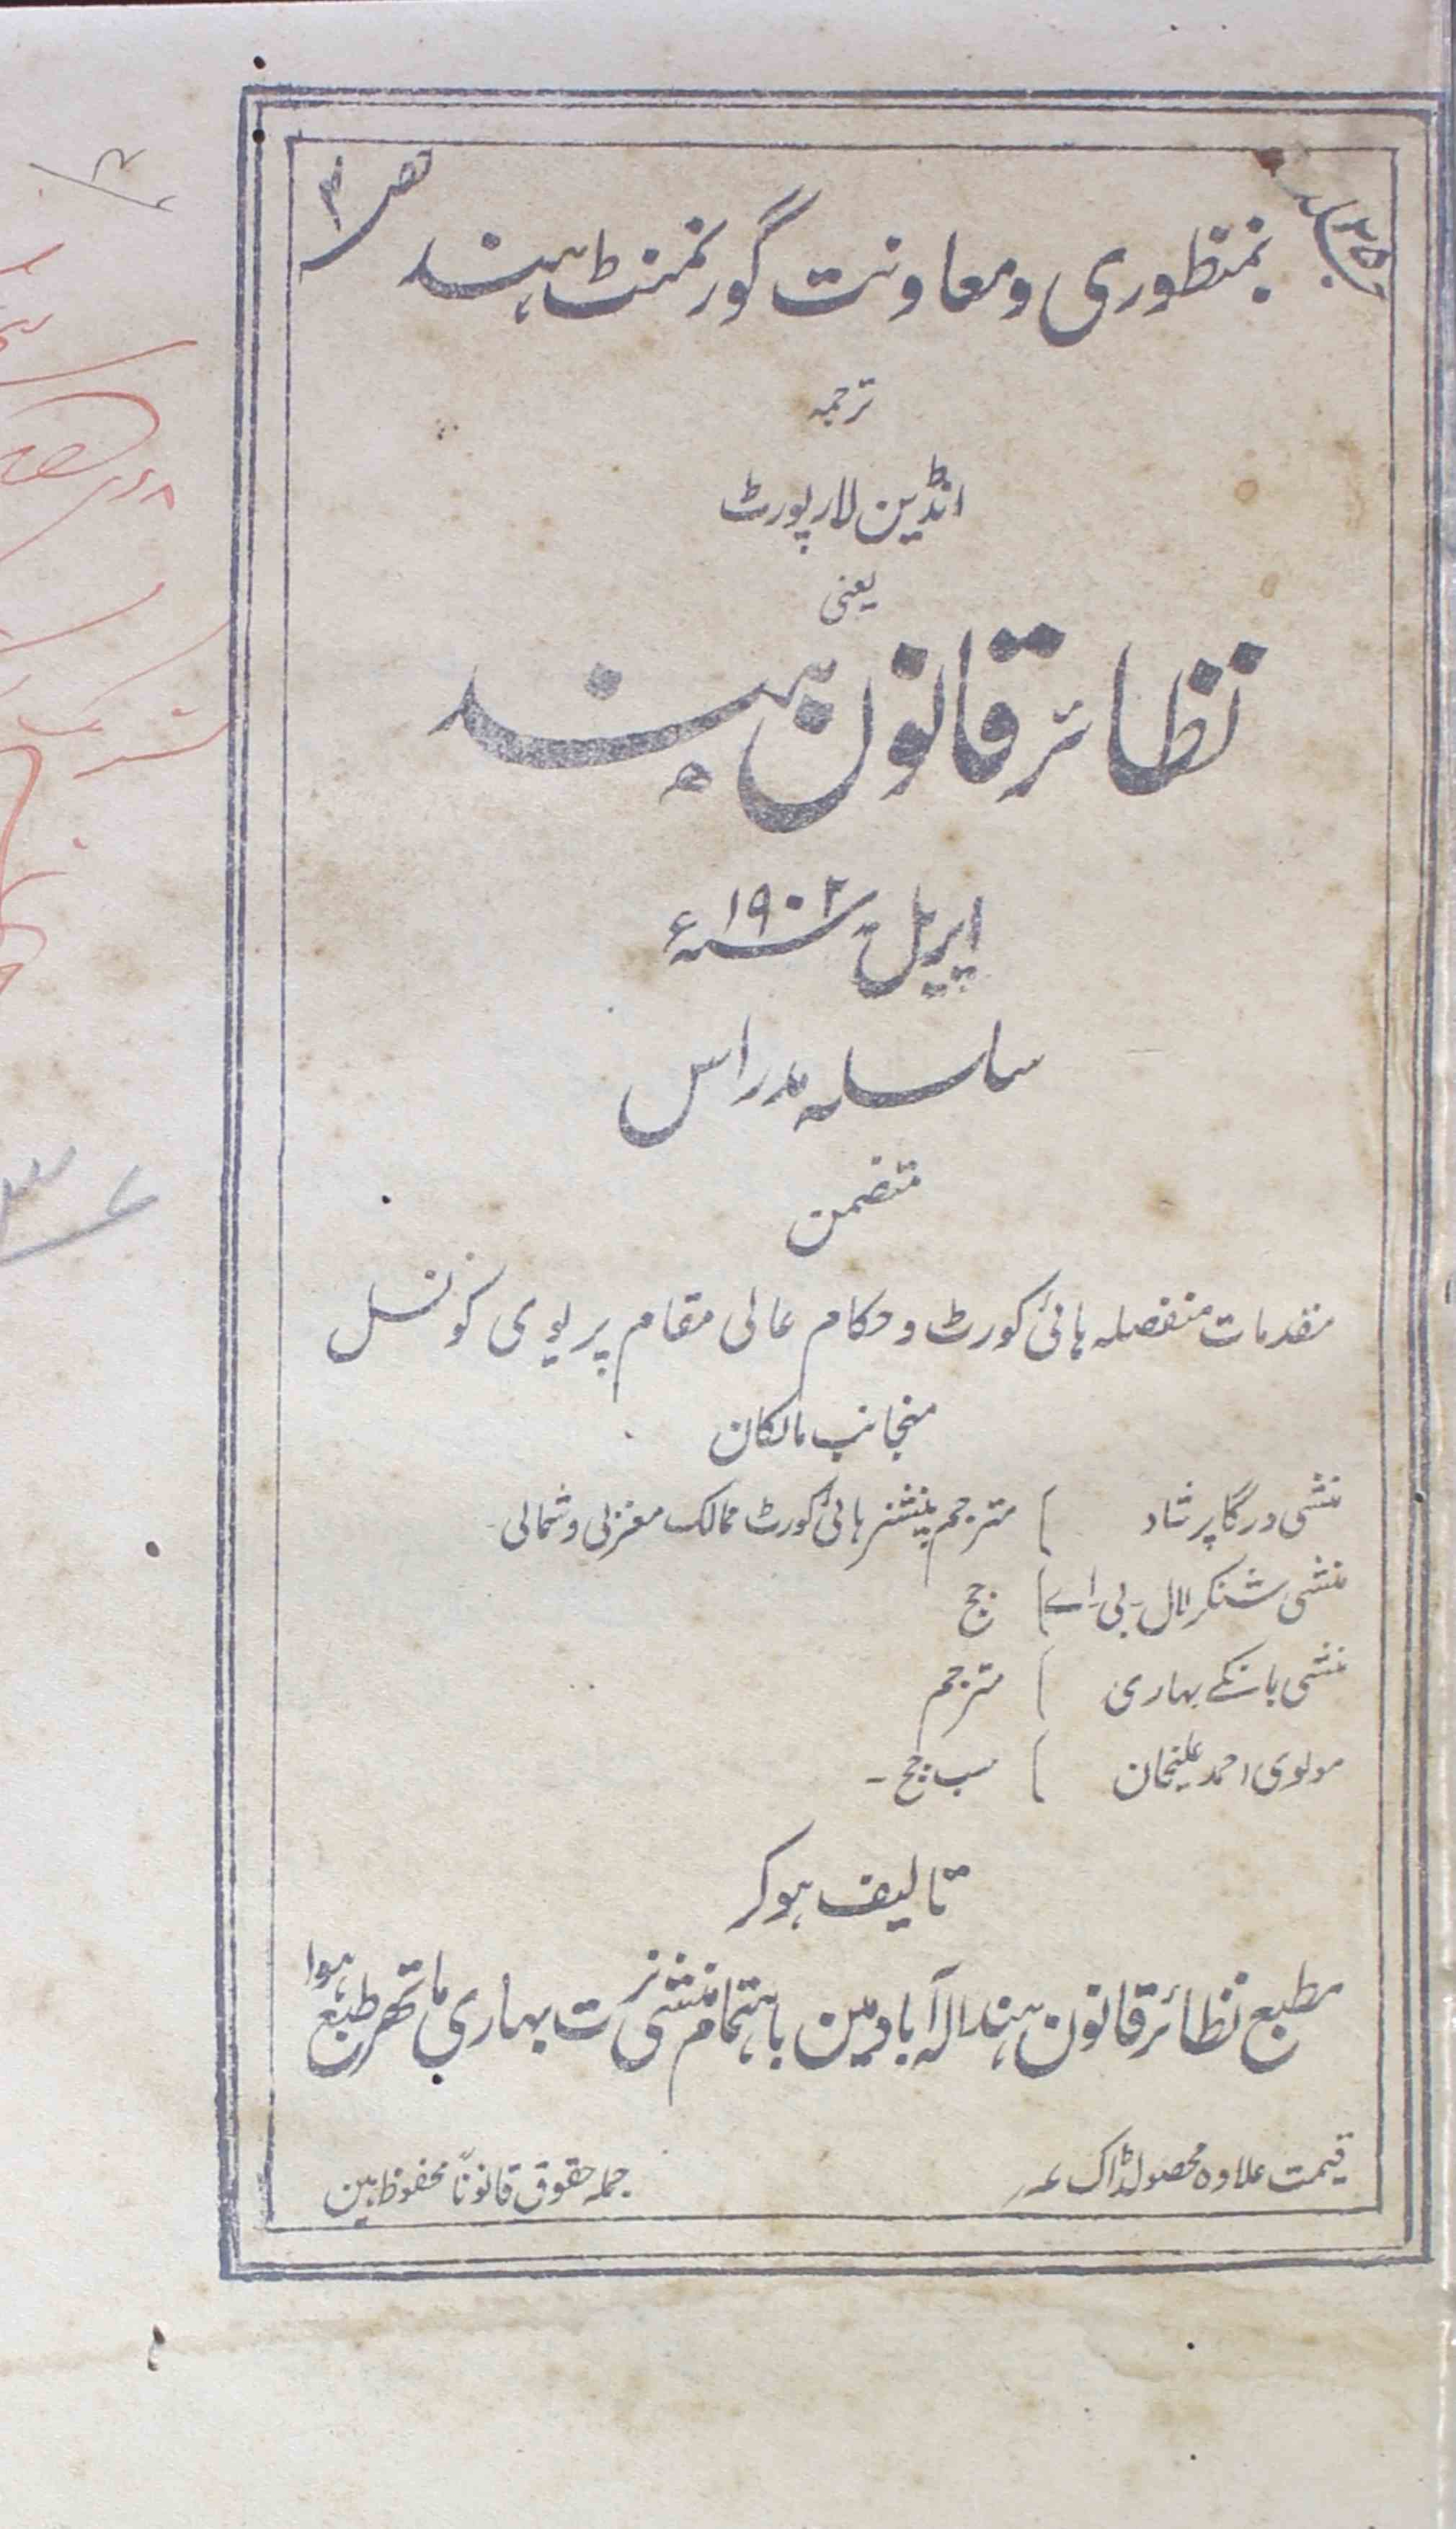 جلد ۲۵
حصہ ۴
بمنظوری و معاونت گورنمنٹ ہند
ترجمہ
انڈین لارپورٹ
یعنی
نظائر قانون ہند
اپریل سنہ ۱۹۰۲ ء
سلسلہ مدراس
متضمن
مقدمات منفصلہ ہائی کورٹ و حکام عالی مقام پریوی کونسل
منجانب مالکان
منشی درگا پرشاد ) مترجم پنشنر ہائی کورٹ ممالک مغربی و شمالی۔
منشی شنکر لال۔ بی۔ اے ) جج
منشی بانکے بہاری ) مترجم
مولوی احمد علیخان ) سب جج۔
تالیف ہوکر
مطبع نظائر قانون ہند الہ آباد مین باہتمام منشی بہاری ماتھر طبع ہوا
قیمت علاوہ محصول ڈاک
جملہ حقوق قانوناً محفوظ ہین